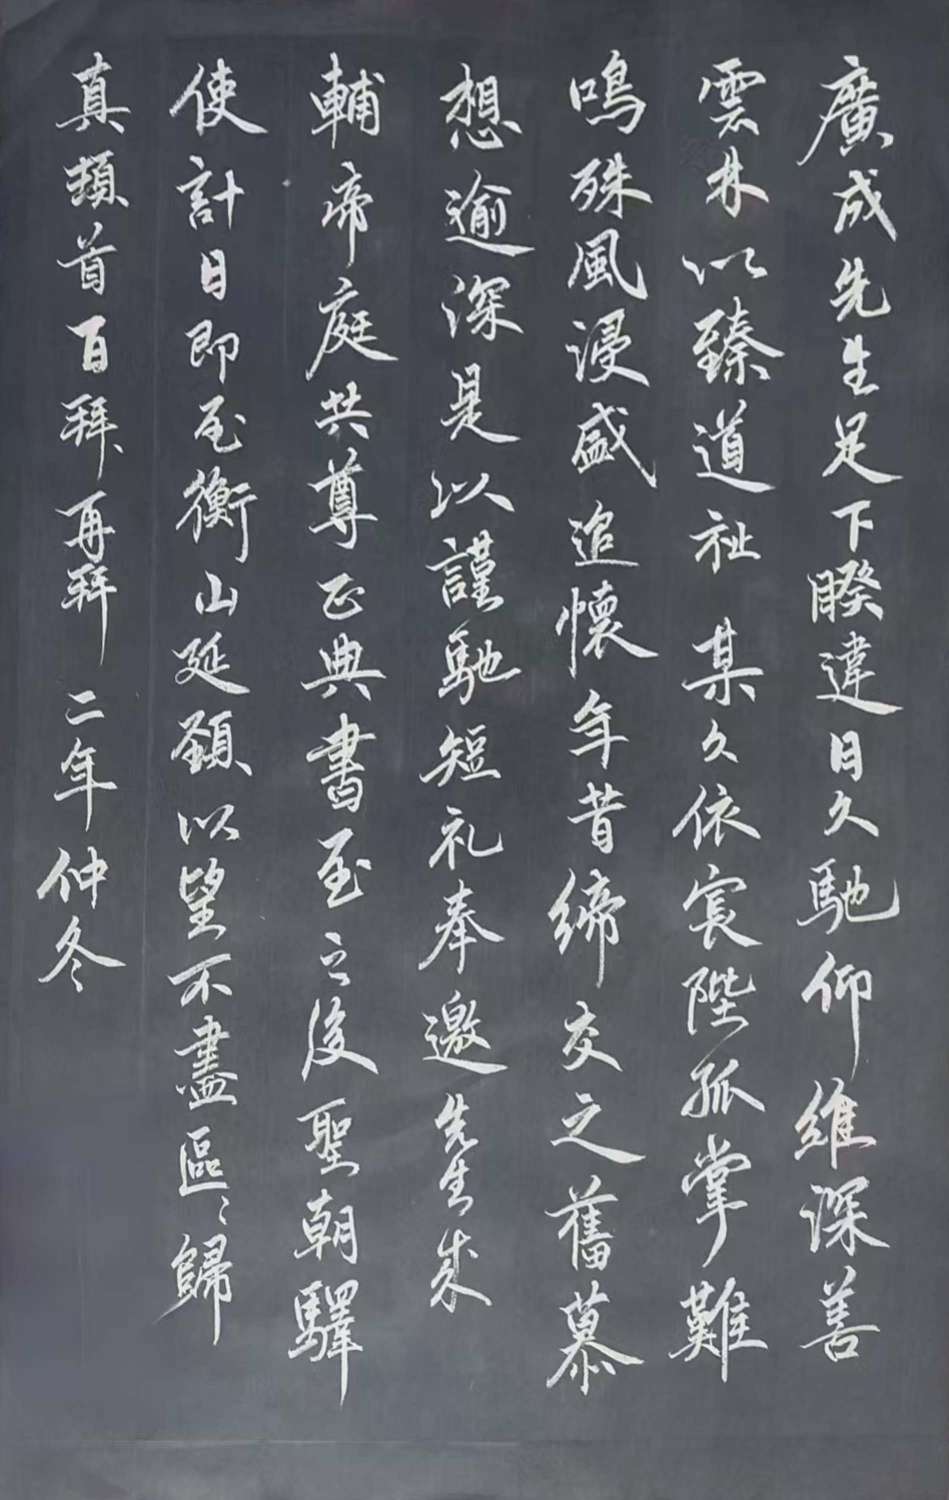 廣成先生足下睽違日久馳仰維深善
雲林以臻道祉某久依宸陛孤掌難
鳴殊風浸盛追懷年昔締交之舊慕
想逾深是以謹馳短礼奉邀先生來
輔帝庭共尊正典書至之後聖朝驛
使計日即至衡山延頸以望不盡區〻歸
真頓首百拜再拜二年仲冬